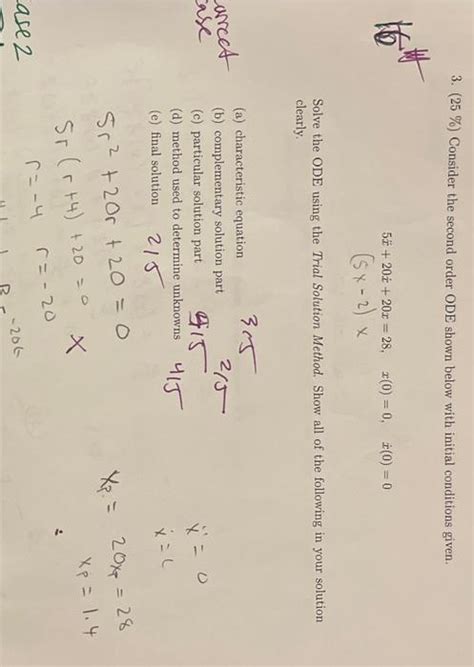 3. (25 %) Consider the second order ODE shown below with initial conditions given.
16
5ẍ + 20ẋ + 20x = 28, x(0) = 0, ẋ(0) = 0
(5x - 2) x
Solve the ODE using the Trial Solution Method. Show all of the following in your solution
clearly.
(a) characteristic equation 3/5
(b) complementary solution part 2/5
(c) particular solution part 4/5
(d) method used to determine unknowns 4/5
(e) final solution 2/5
ase
5r² + 20r + 20 = 0
5r (r+4) + 20 = 0 x
r = -4 r = -20
ẍ = 0
ẋ = 0
xp = 20xp = 28
xp = 1.4
ase 2